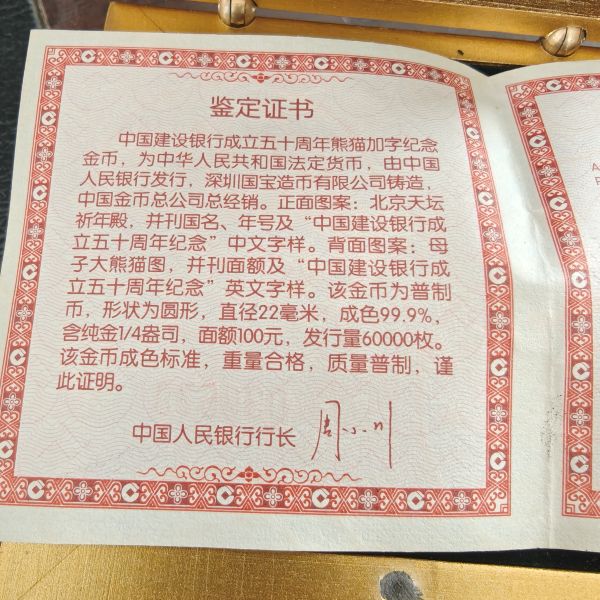 鉴定证书
中国建设银行成立五十周年熊猫加字纪念
金币，为中华人民共和国法定货币，由中国
人民银行发行，深圳国宝造币有限公司铸造，
中国金币总公司总经销。正面图案：北京天坛
祈年殿，并刊国名、年号及“中国建设银行成
立五十周年纪念”中文字样。背面图案：母
子大熊猫图，并刊面额及“中国建设银行成
立五十周年纪念”英文字样。该金币为普制
币，形状为圆形，直径22毫米，成色99.9%，
含纯金1/4盎司，面额100元，发行量60000枚。
该金币成色标准，重量合格，质量普制，谨
此证明。
中国人民银行行长 周小川